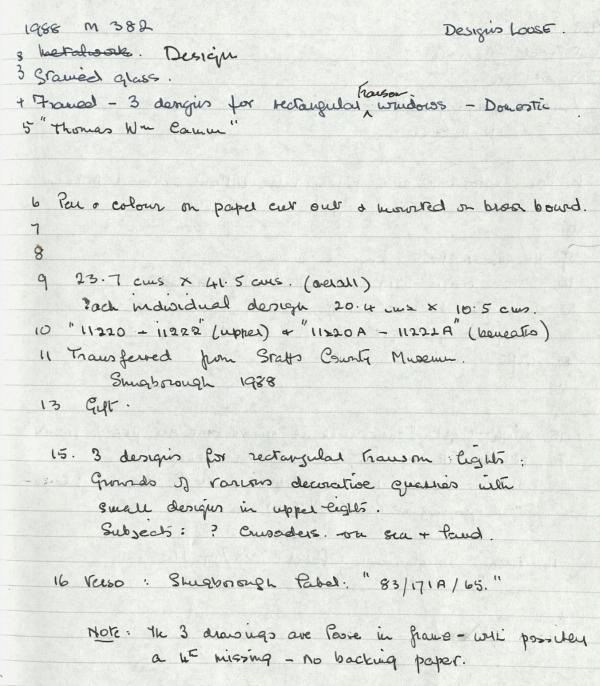 1988 M 382 Designs Loose.
3 metalwork. Design
3 Stained glass.
4 Framed - 3 designs for rectangular transom windows - Domestic
5 "Thomas Wm Camm"
6 Pen & colour on paper cut out & mounted on brown board.
7
8
9 23.7 cms × 41.5 cms. (overall)
Each individual design 20.4 cms × 10.5 cms.
10 "11220 - 11222" (upper) & "11220A - 11222A" (beneath)
11 Transferred from Staffs County Museum.
Shugborough 1988
13 Gift.
15. 3 designs for rectangular transom lights:
Grounds of various decorative quarries with
small designs in upper lights.
Subjects: ? Crusaders. on sea + land.
16 Verso: Shugborough label: "83/171A/65."
Note: The 3 drawings are loose in frame - with possibly
a 4th missing - no backing paper.